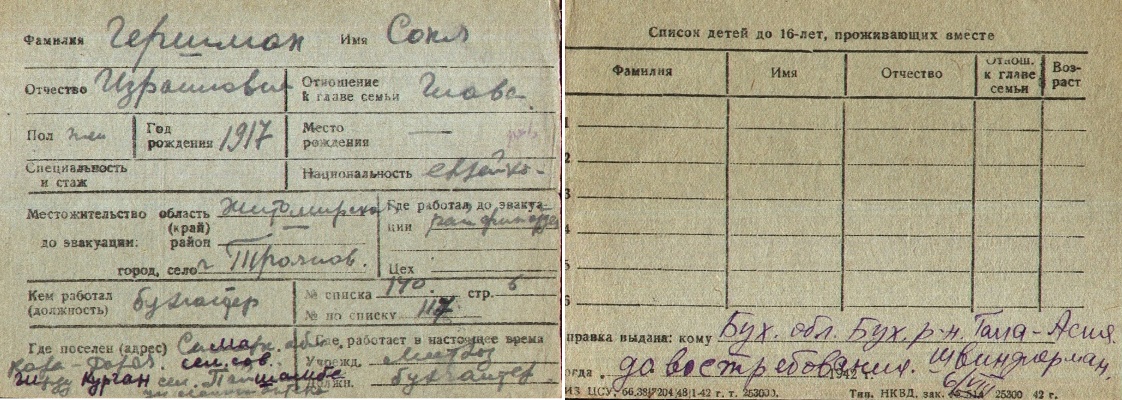 Фамилия Гершман Имя Соня
Отчество Израиловна Отношение к главе семьи Глава
Пол Год рождения 1917 Место рождения —
Специальность и стаж
Национальность еврейка
Местожительство до эвакуации: область (край) Житомирская
район —
город, село г. Троянов.
Где работал до эвакуации райфинотдел
Цех
Кем работал (должность) бухгалтер
№ списка 170 стр. 6
№ по списку 117
Где поселен (адрес) Самарк. обл.
сел. сов.
Курган сел.
Где, работает в настоящее время
Учрежд.
Должн. бухгалтер
Список детей до 16-лет, проживающих вместе
Фамилия Имя Отчество Отнош. к главе семьи Возраст
1
2
3
4
5
6
правка выдана: кому Бух. обл. Бух. р-н. Гала-Асия.
огда до востребования. Швиндлерман.
1942 г. 6/VIII
ИЗ ЦСУ. 66.38/204/48/1-42 г. т. 253000. Тип. НКВД, зак. 25300 42 г.